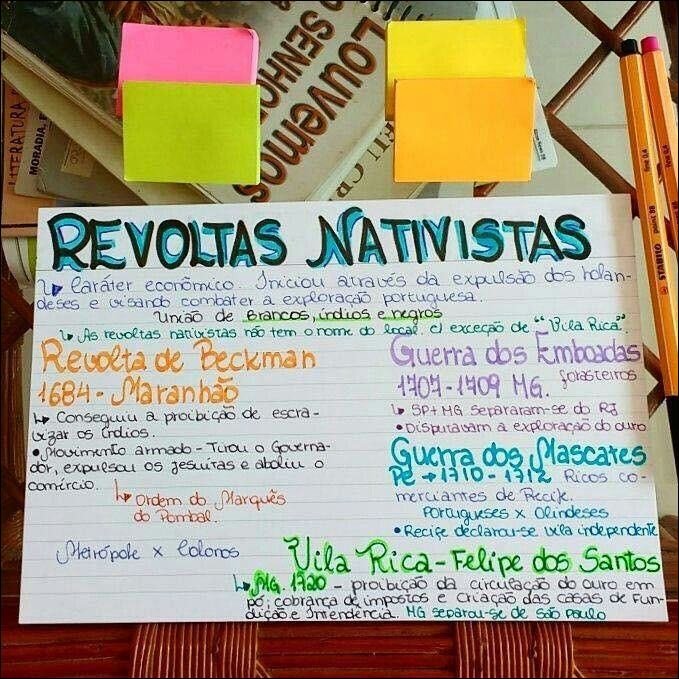 LITERATURA
MORADIA,
Louvemos
O SENHO
REVOLTAS NATIVISTAS
↳ Caráter econômico. Iniciou através da expulsão dos holan-
deses e visando combater a exploração portuguesa.
União de Brancos, índios e negros
↳ As revoltas nativistas não tem o nome do local. c/ exceção de "Vila Rica".
Revolta de Beckman
1684 - Maranhão
↳ Conseguiu a proibição de escra-
vizar os índios.
• Movimento armado - Tirou o Governa-
dor, expulsou os jesuítas e aboliu o
comércio.
↳ Ordem do Marquês
do Pombal.
Metrópole x Colonos
Guerra dos Emboadas
1707 - 1709 MG. forasteiros
↳ SP + MG separaram-se do RJ
• Disputavam a exploração do ouro
Guerra dos Mascates
PE → 1710 - 1712 Ricos co-
merciantes de Recife.
Portugueses x Olindeses
• Recife declarou-se vila independente
Vila Rica - Felipe dos Santos
↳ MG. 1720 - proibição da circulação do ouro em
pó; cobrança de impostos e criação das casas de Fun-
dição e Intendência. MG separou-se de São Paulo
STABILO
point 88
fine 0,4